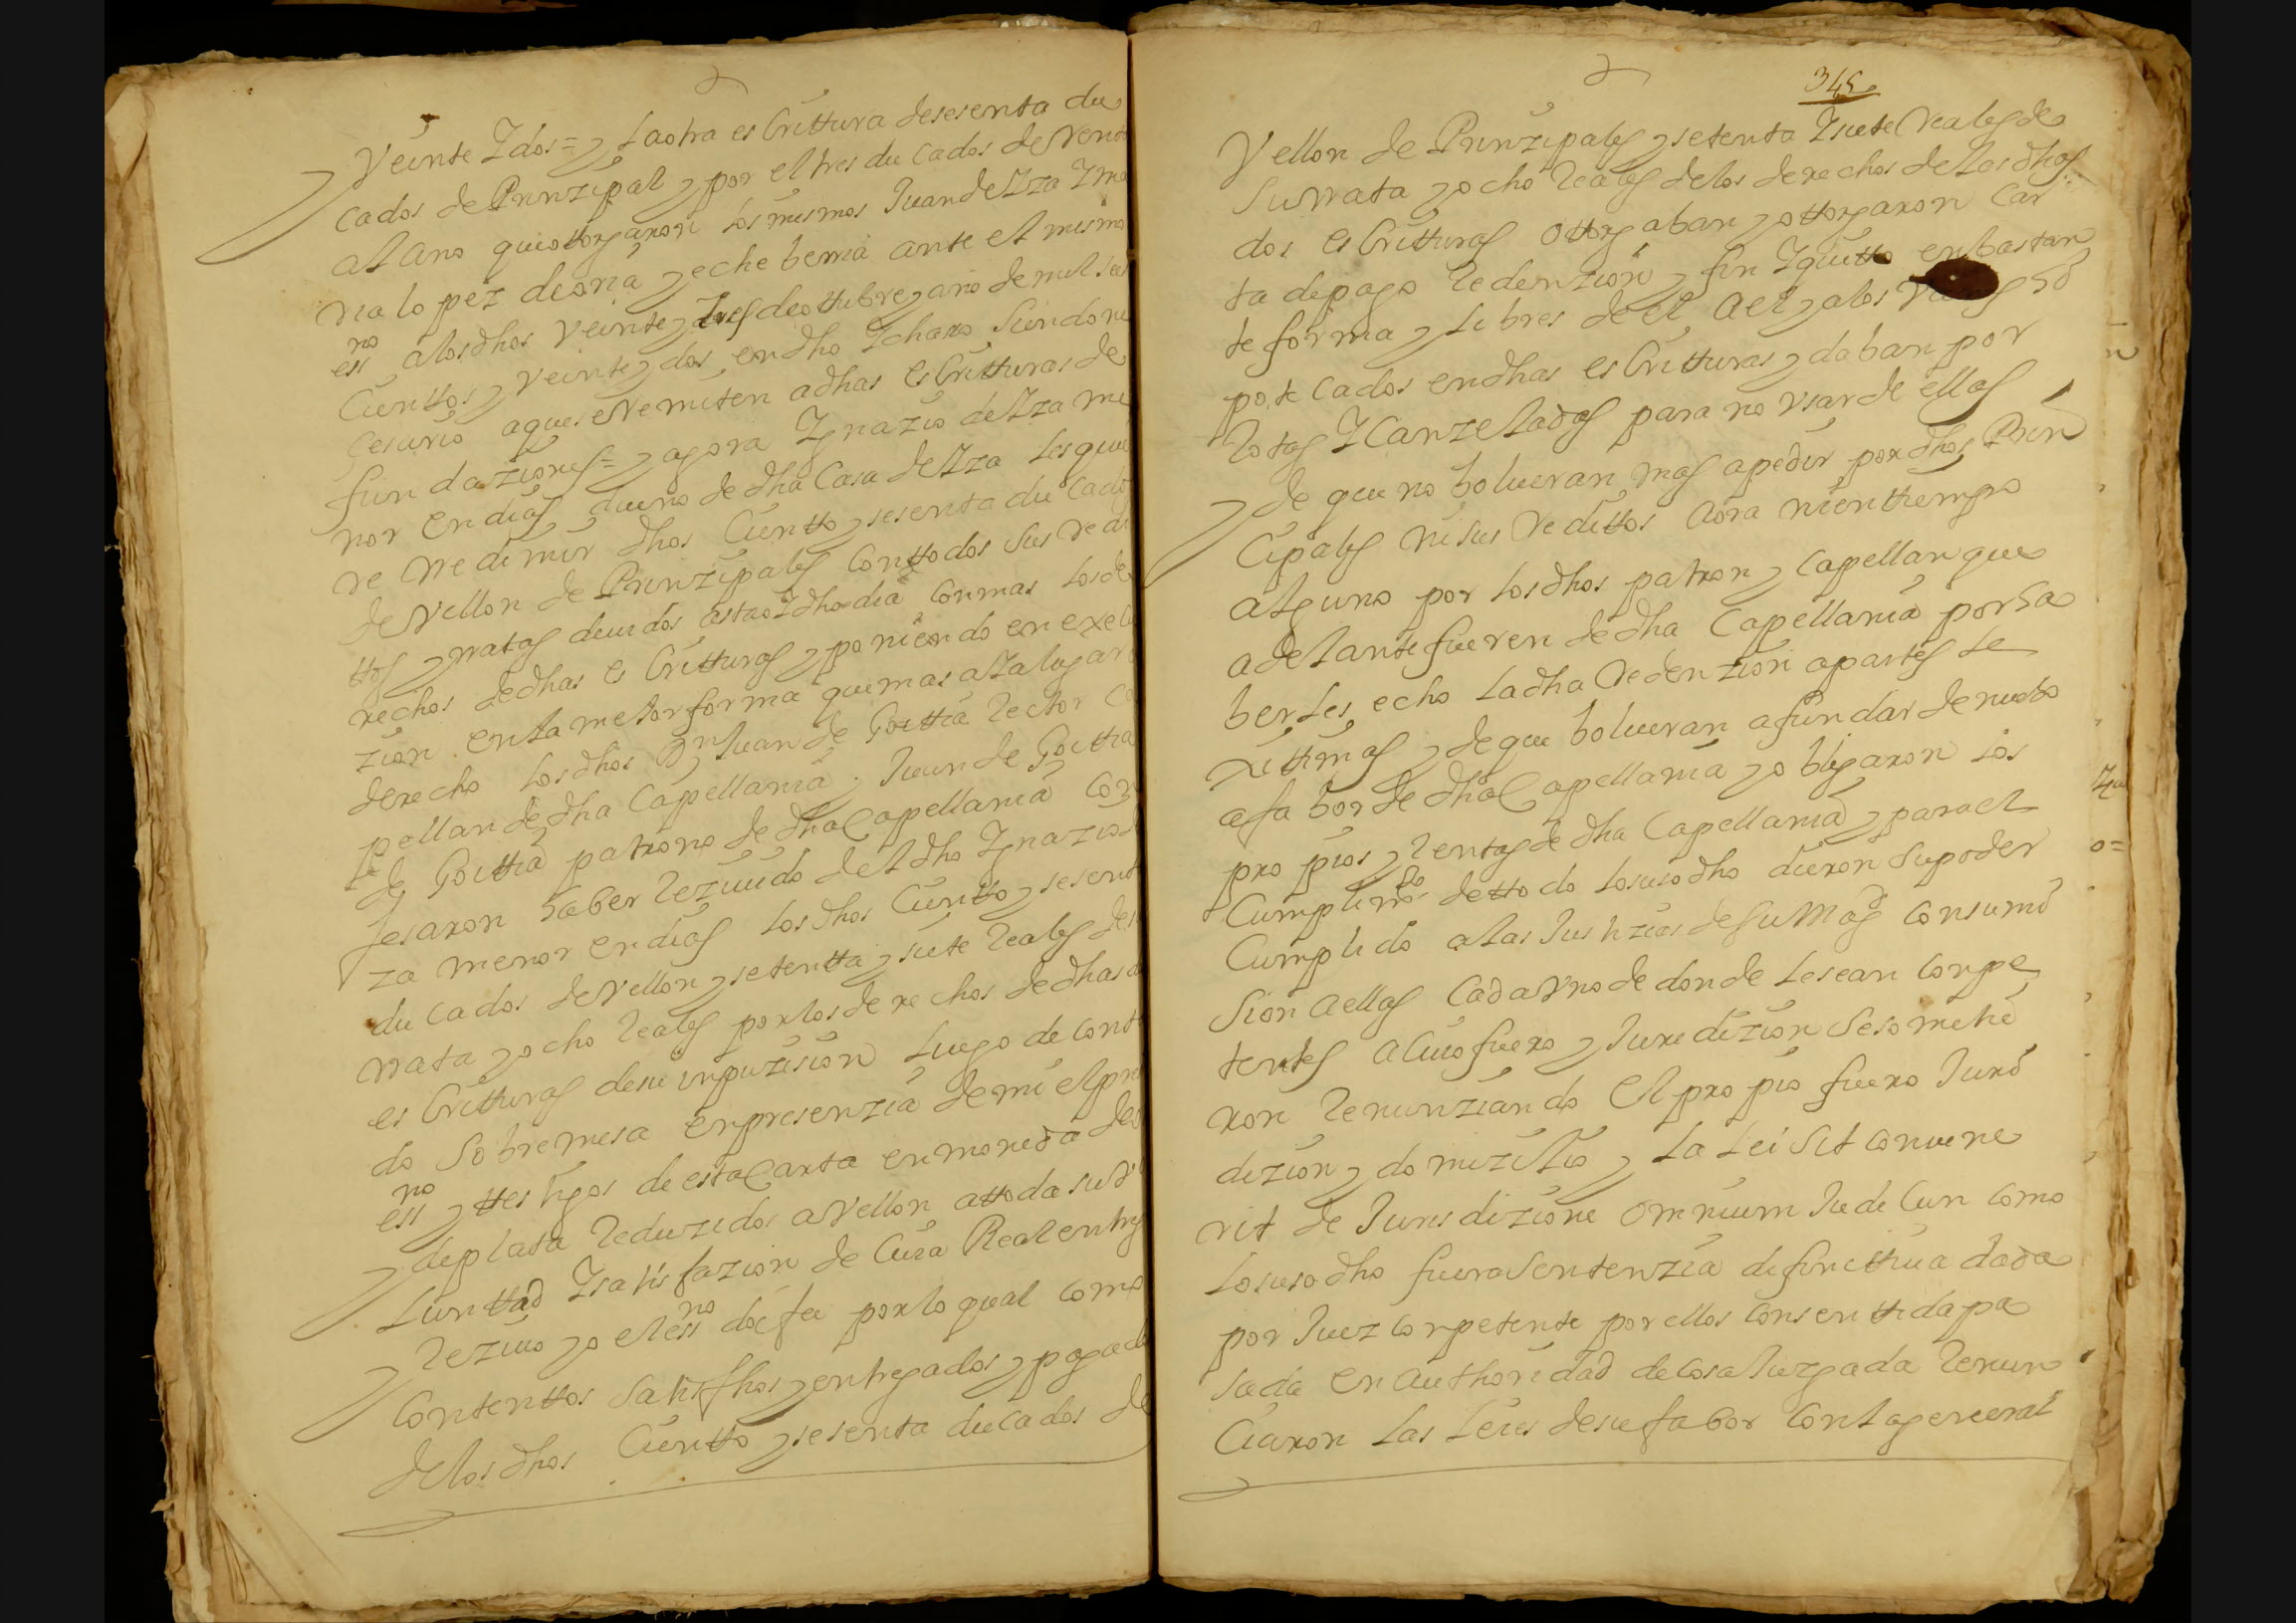 Veinte Y dos = y la otra escrittura de sesenta du
cados de Prinzipal y por el tres ducados de Rent
al año que ottorgaron los mismos Juan de Yza Y ma
ria lopez de oria y echeberria ante el mismo
essno a los dhos veinte y tres de ottubre y año de mil seis
cienttos y veinte y dos en dho Ycharo, siendo ne
cesario a que se remiten a dhas escritturas de
fundaziones = y agora Ygnazio de Yza me
nor en dias dueño de dha Casa de Yza les quie
re redimir dhos Ciento y sesenta ducados
de vellon de Prinzipales con ttodos sus redi
ttos y rratas deuidos asta oy dho dia con mas los de
rechos de dhas escritturas y poniendo en execu
zion en la mejor forma que mas aya lugar
derecho los dhos Dn Juan de Goittia Rector ca
pellan de dha Capellania, Juan de Goittia
de Goittia patrono de dha Capellania con
fesaron haber reziuido del dho Ygnazio de
za menor en dias los dhos Cientto y sesent
ducados de vellon y setentta y siete reales de su
rrata y ocho reales por los derechos de dhas d
escritturas de su inpuzision luego de cont
do sobre mesa en presenzia de mi el pre
essno y ttestigos de esta Carta en moneda de
de plata reduzidos a vellon a ttoda su v
luntad Y satisfazion de Cuia Real entreg
reziuo yo el essno doi fee por lo qual como
contenttos satisfhos y entregados y pagad
de los dhos Cientto y sesenta ducados de
345
Vellon de Prinzipales y setenta Y siete Reales de
su rrata y ocho reales de los derechos de las dhas
dos escritturas ottorgaban y ottorgaron Car
ta de pago redenzion y fin Y quitto en bastan
te forma y libres de el a el y a los
potecados en dhas escritturas y daban por
rotas Y Canzeladas para no vsar de ellas
y de que no bolueran mas a pedir por dhos Prin
cipales ni sus redittos aora ni en tiempo
alguno por los dhos patron y capellan que
adelante fueren de dha Capellania por ha
berles echo la dha redenzion a partes le
xittimas y de que bolueran a fundar de nuebo
a fabor de dha Capellania y obligaron los
propios y rentas de dha Capellania y para el
Cumplimto de ttodo lo suso dho dieron su poder
Cumplido a las Justizias de su Magd con sumi
sion a ellas Cada vno de donde le sean conpe
tentes a Cuio fuero y Juridizion se somettie
ron renunziando el propio fuero Juri
dizion y domizilio y la lei sit conuene
rit de Jurisdizione omnium Judicun como
lo suso dho fuera sentenzia difinittiua dada
por Juez conpetente por ellos consenttida pa
sada en authoridad de cosa Juzgada renun
ciaron las leies de su fabor con la general